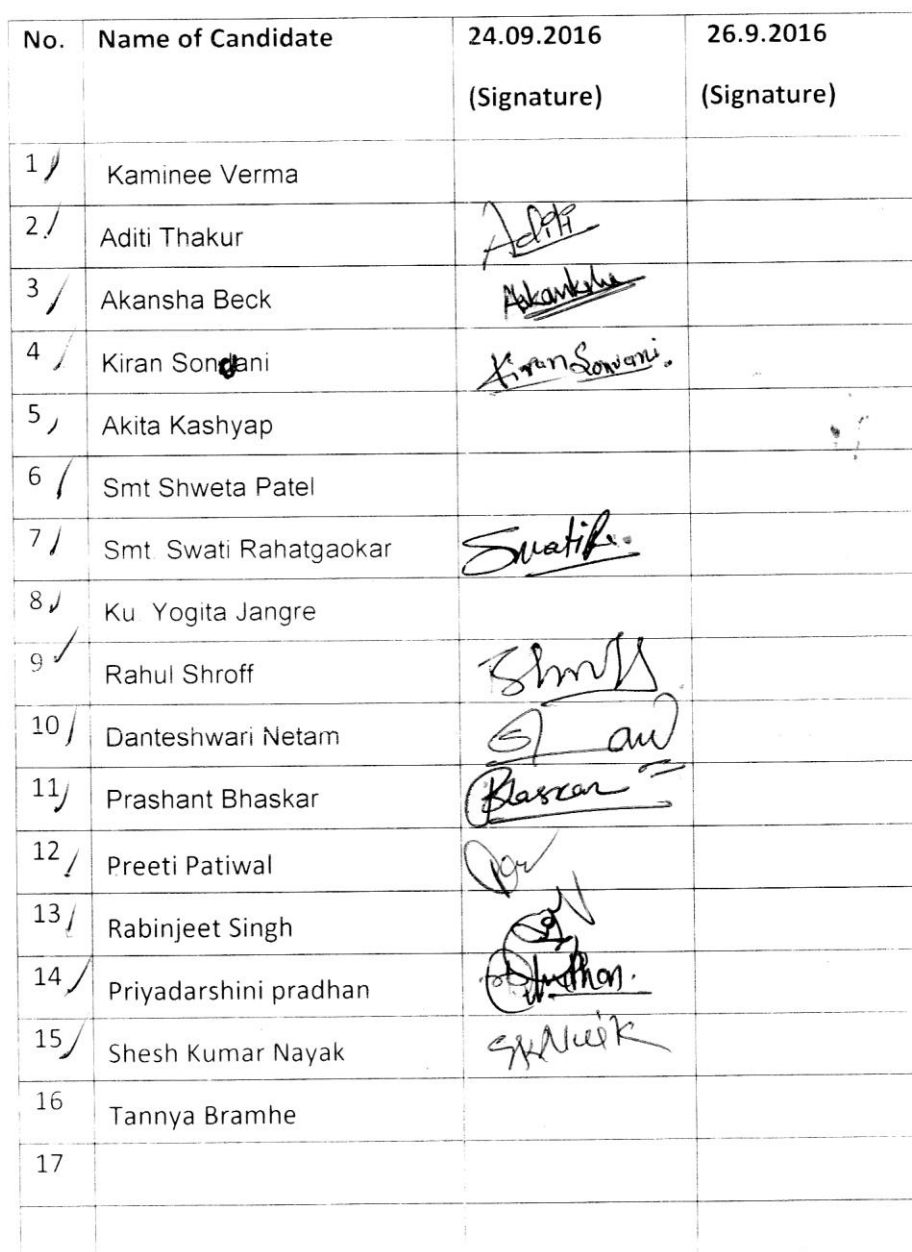 No. Name of Candidate 24.09.2016 26.9.2016
(Signature) (Signature)
1 Kaminee Verma
2 Aditi Thakur Aditi
3 Akansha Beck Aakanksha
4 Kiran Sondani Kiran Sonvani.
5 Akita Kashyap
6 Smt Shweta Patel
7 Smt. Swati Rahatgaokar Swati R.
8 Ku. Yogita Jangre
9 Rahul Shroff Shroff
10 Danteshwari Netam
11 Prashant Bhaskar Bhaskar
12 Preeti Patiwal
13 Rabinjeet Singh
14 Priyadarshini pradhan
15 Shesh Kumar Nayak
16 Tannya Bramhe
17